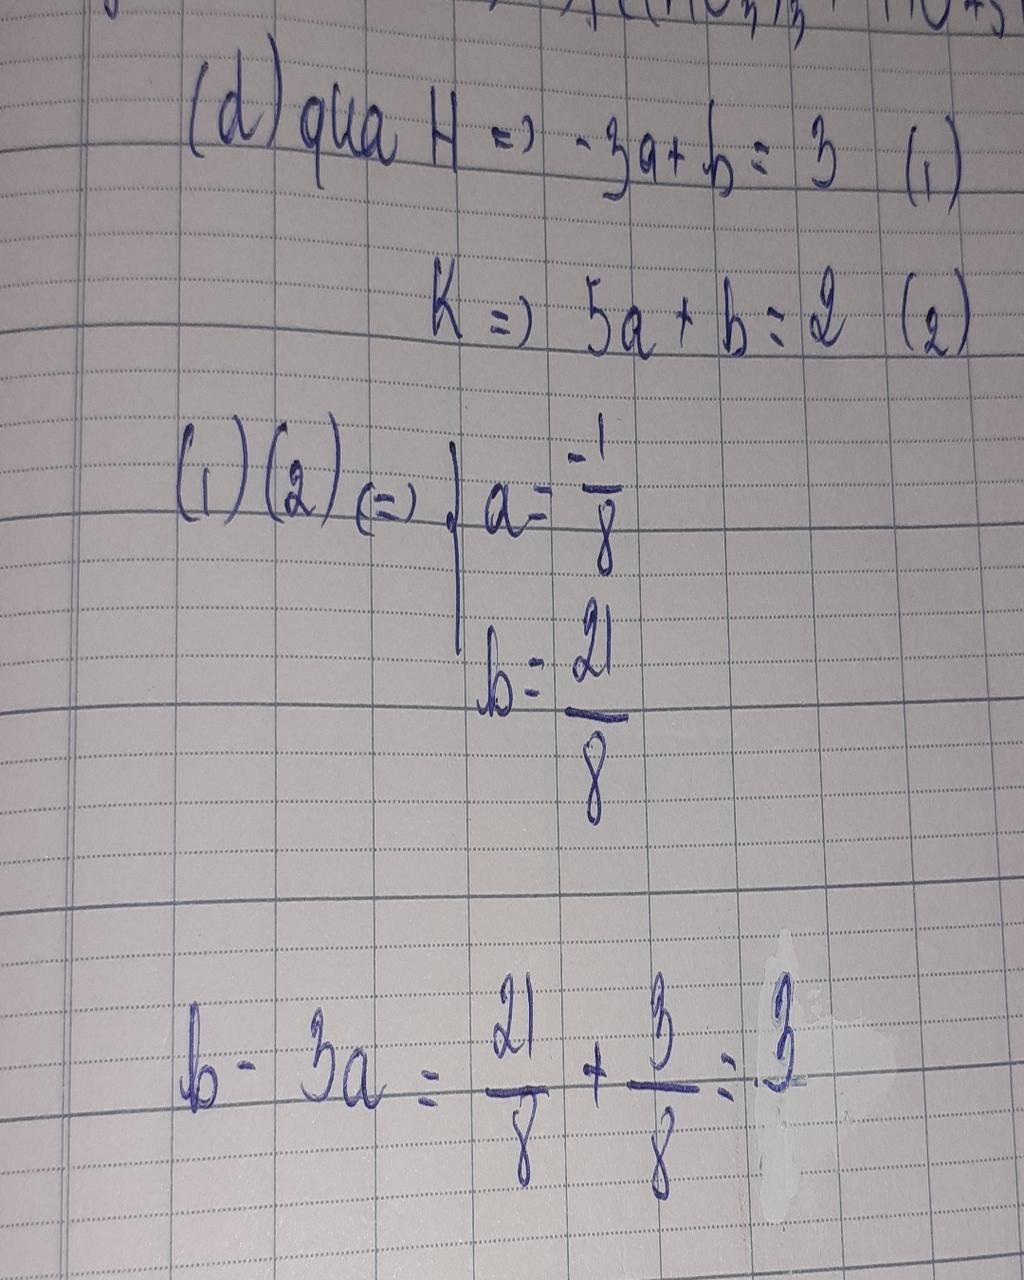 (d) qua H => -3a + b = 3 (1)
K => 5a + b = 2 (2)
(1) (2) (=) { a = -1/8
b = 21/8
b - 3a = 21/8 + 3/8 = 3